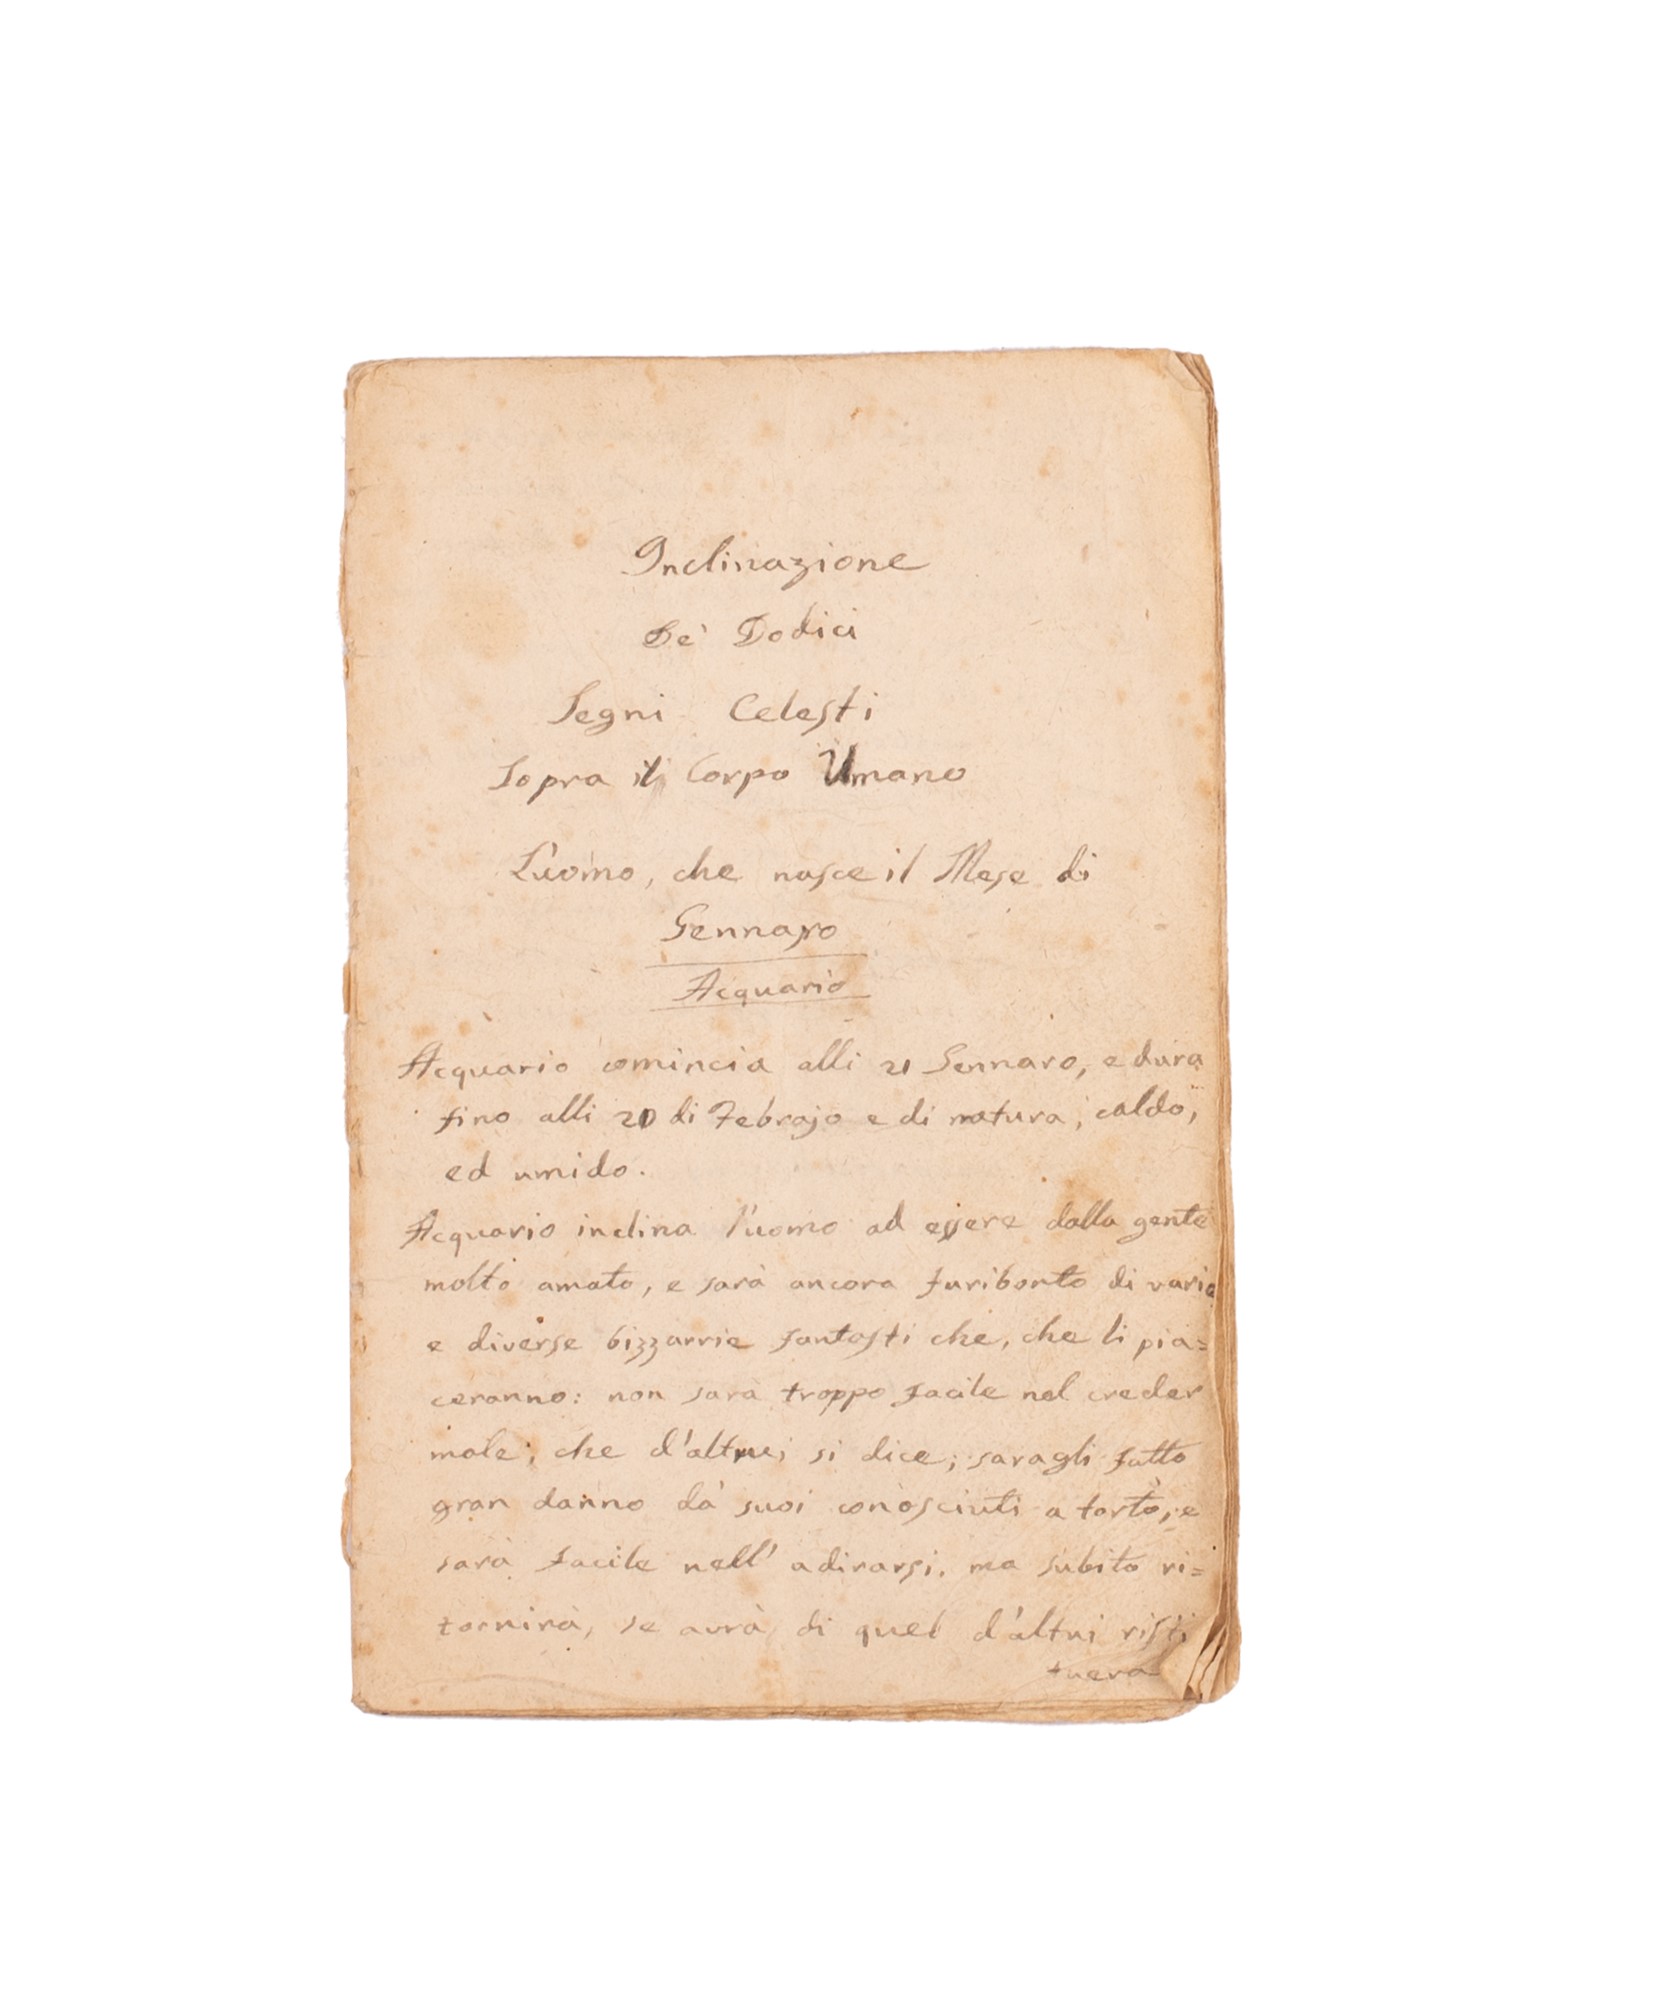 Inclinazione
De' Dodici
Segni Celesti
Sopra il Corpo Umano
L'uomo, che nasce il Mese di
Gennaro
Acquario
Acquario comincia alli 21 Gennaro, e dura
fino alli 20 di Febrajo e di natura, caldo,
ed umido.
Acquario inclina l'uomo ad essere dalla gente
molto amato, e sarà ancora furibonto di varie
e diverse bizzarrie fantasti che, che li pia=
ceranno: non sarà troppo facile nel creder
male, che d'altrui si dice, saragli fatto
gran danno da' suoi conosciuti a torto, e
sarà facile nell' adirarsi, ma subito ri=
tornirà, se avrà di quel d'altrui risti
tuerà